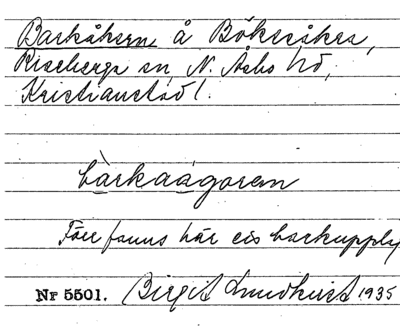 Barkåkern å Bökesåkra,
Riseberga sn, N. Åsbo hd,
Kristianstad l.
barkaagoren
Förr fanns här ett barkupplag
Nr 5501. Birgit Lundkvist 1935